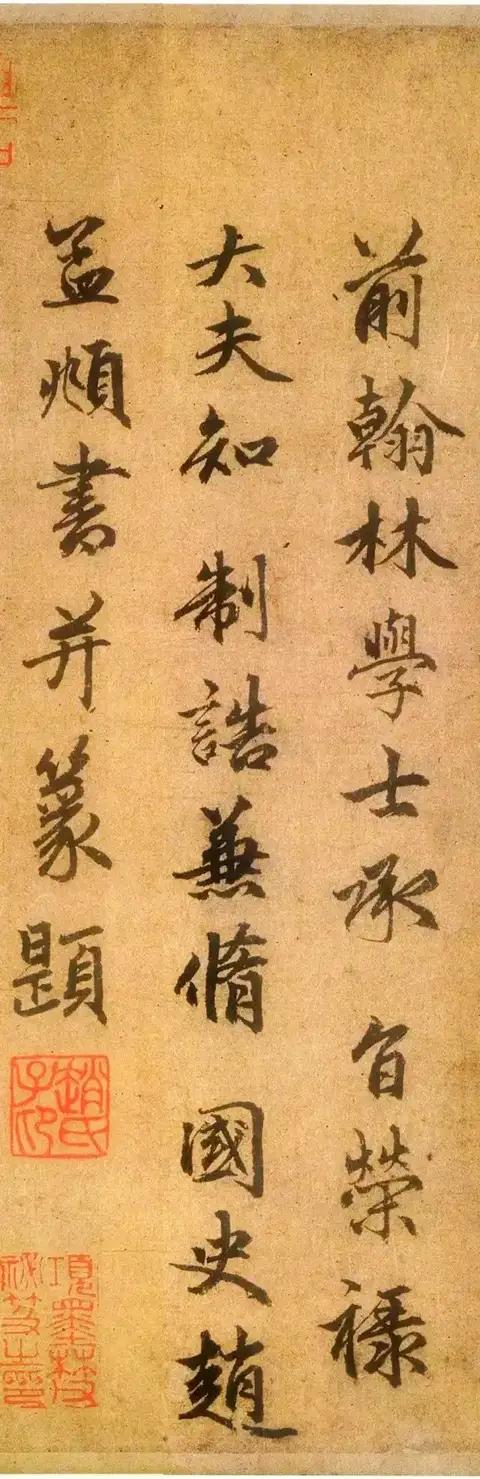 前翰林學士承旨榮祿
大夫知制誥兼脩國史趙
孟頫書并篆題
趙氏子印